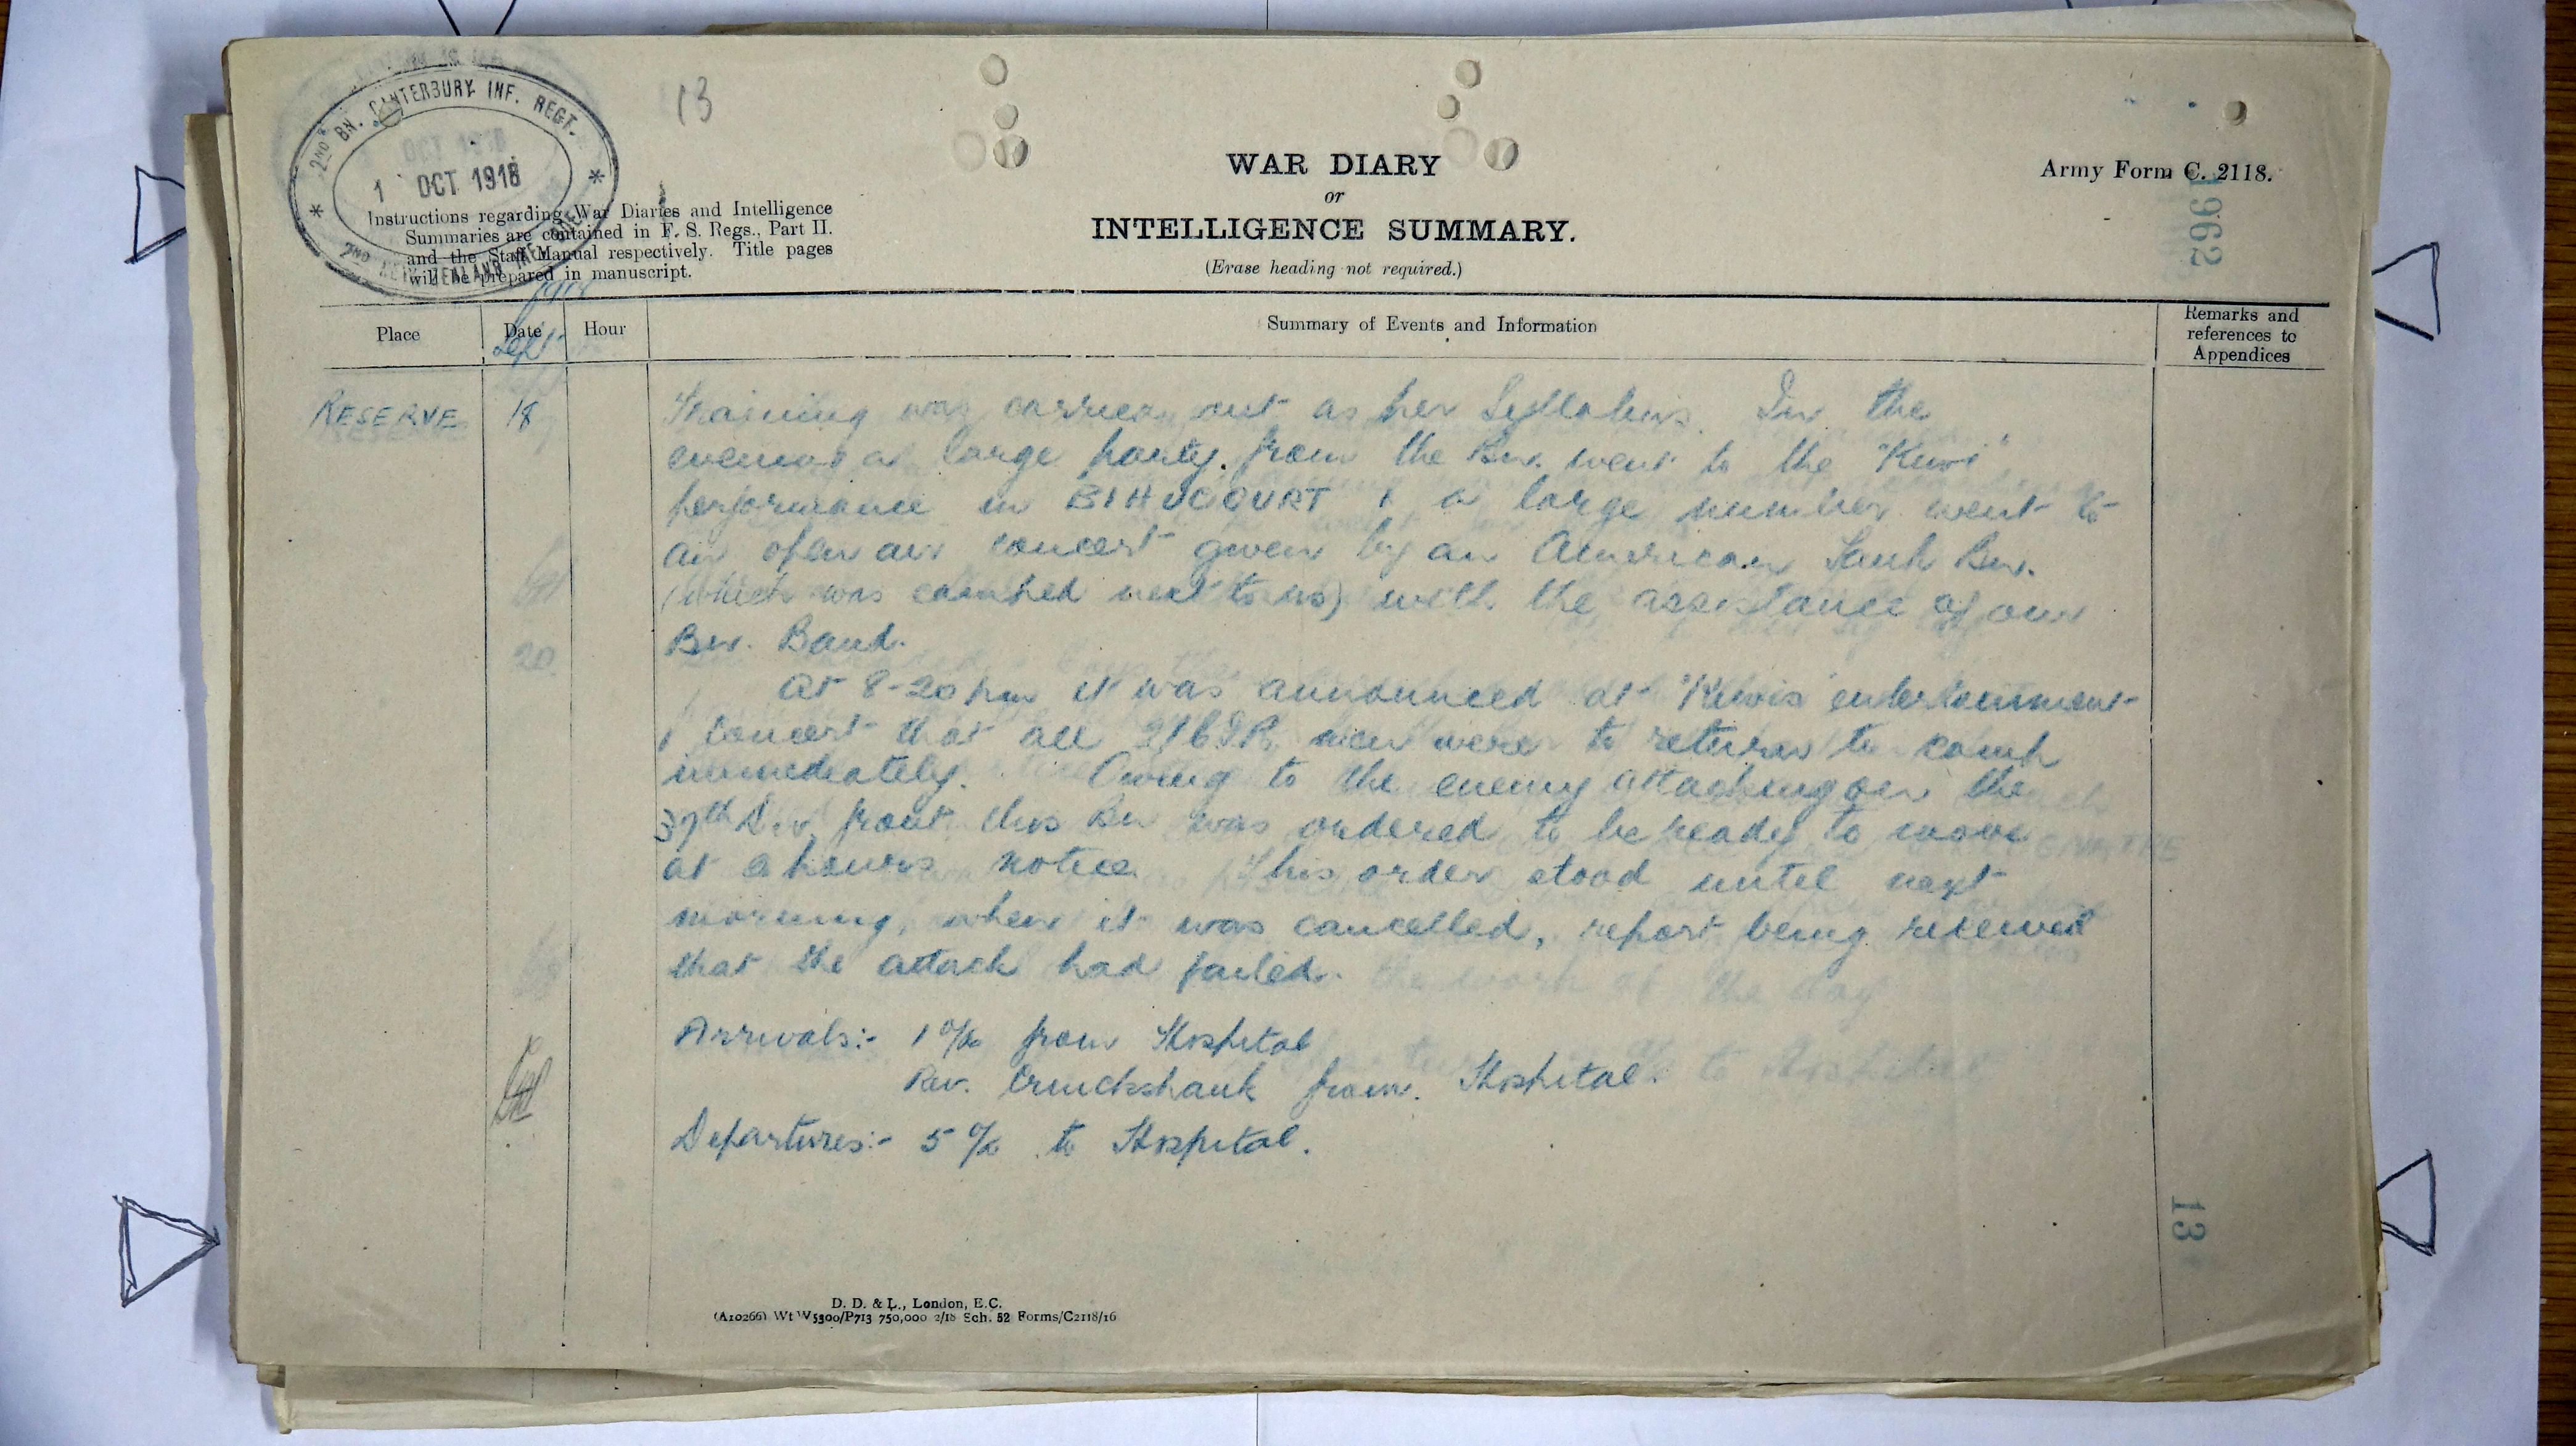 2ND BN. CANTERBURY INF. REGT.
1 OCT 1918
2ND NEW ZEALAND INF. BDE.
13
WAR DIARY
or
INTELLIGENCE SUMMARY.
(Erase heading not required.)
Army Form C. 2118.
1962
Instructions regarding War Diaries and Intelligence
Summaries are contained in F. S. Regs., Part II.
and the Staff Manual respectively. Title pages
will be prepared in manuscript.
Place
Date
1918
Sept
Hour
Summary of Events and Information
Remarks and
references to
Appendices
RESERVE 18 Training was carried out as per Syllabus. In the
evening a large party from the Bn. went to the "Kiwi"
performance in BIHUCOURT & a large number went to
an open air concert given by an American Tank Bn.
(which was camped next to us) with the assistance of our
Bn. Band.
At 8-20 pm it was announced at "Kiwis" entertainment
& concert that all 2/C.I.R. men were to return to camp
immediately. Owing to the enemy attacking on the
37th Div. front this Bn was ordered to be ready to move
at hours notice. This order stood until next
morning, when it was cancelled, report being received
that the attack had failed.
Arrivals:- 1 O/R from Hospital
Rev. Cruickshank from Hospital.
Departures:- 5 O/R to Hospital.
13
D. D. & L., London, E.C.
(A10266) Wt W5300/P713 750,000 2/18 Sch. 52 Forms/C2118/16